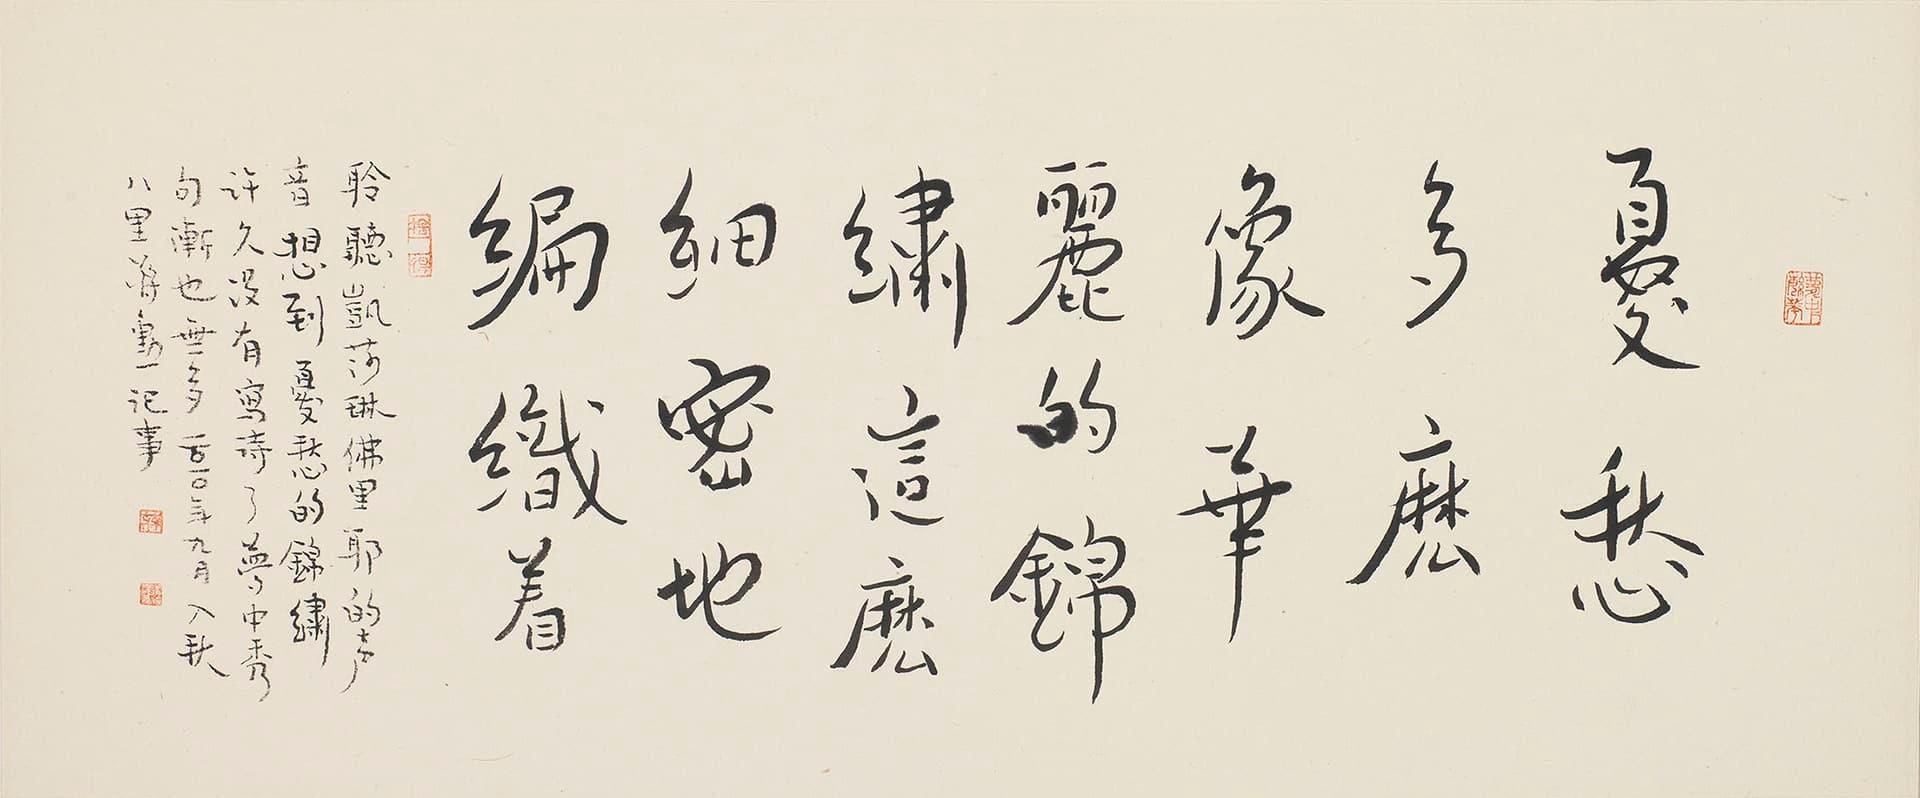 憂愁
多麼
像華
麗的錦
繡這麼
細密地
編織着
聆聽凱莎琳佛里耶的声
音想到憂愁的錦繡
許久没有寫詩了夢中秀
句漸也無多二〇一〇年九月入秋
八里蔣勳記事
捨得